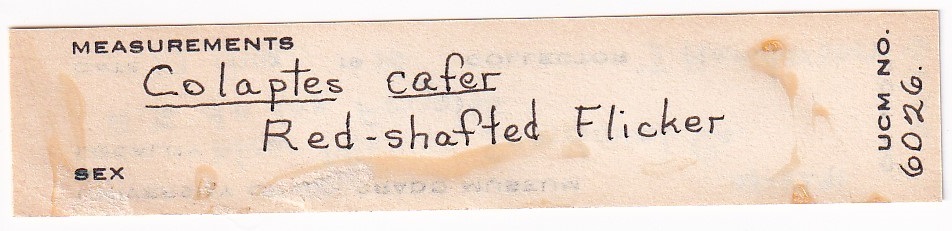 MEASUREMENTS
Colaptes cafer
Red-shafted Flicker
SEX
UCM NO.
6026.